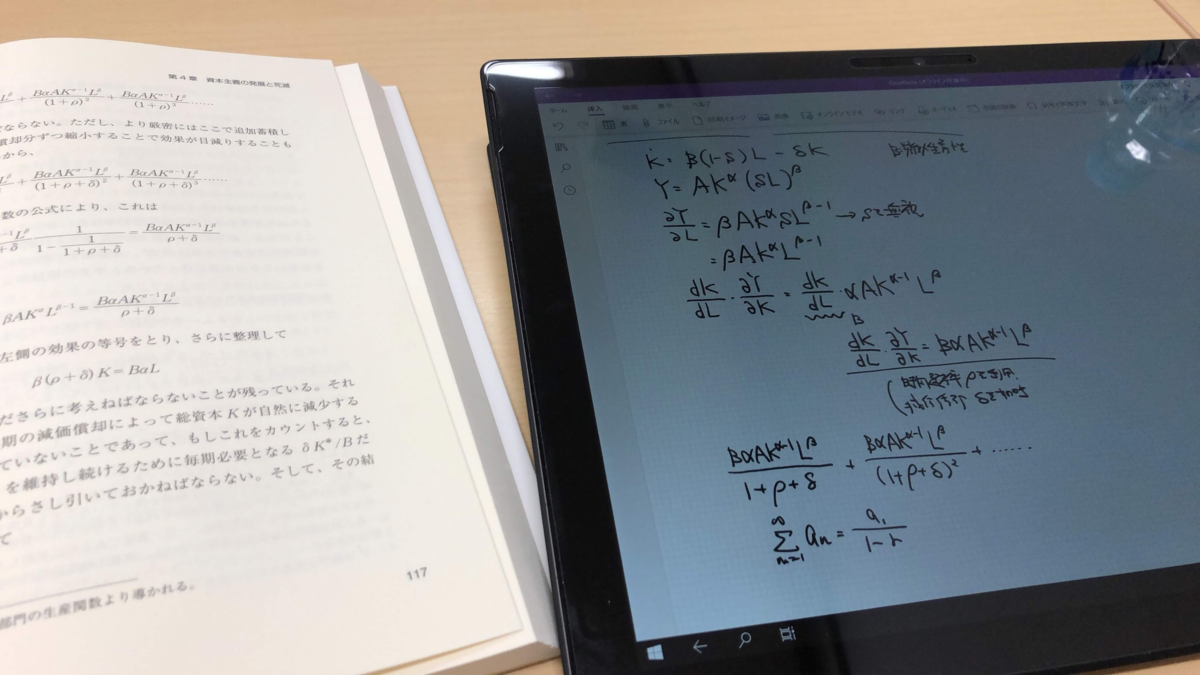 第4章 資本主義の発展と死滅
L^β + BαAK^{α−1}L^β/(1+ρ)^2 + BαAK^{α−1}L^β/(1+ρ)^3 ……
ならない。ただし、より厳密にはここで追加蓄積し
償却分ずつ縮小することで効果が目減りすることも
から、
L^β + BαAK^{α−1}L^β/(1+ρ+δ)^2 + BαAK^{α−1}L^β/(1+ρ+δ)^3 ……
数の公式により、これは
−1L^β/+δ 1/(1−1/(1+ρ+δ)) = BαAK^{α−1}L^β/(ρ+δ)
βAK^αL^{β−1} = BαAK^{α−1}L^β/(ρ+δ)
左側の効果の等号をとり、さらに整理して
β(ρ+δ)K=BαL
ださらに考えねばならないことが残っている。それ
期の減価償却によって総資本Kが自然に減少する
ていないことであって、もしこれをカウントすると、
を維持し続けるために毎期必要となるδK*/Bだ
からさし引いておかねばならない。そして、その結
て
部門の生産関数より導かれる。
117
ホーム 挿入 描画 表示 ヘルプ
表 ファイル 画像 リンク
K̇ = B(1−s)L − δK
Y = AK^α(sL)^β
∂Y/∂L = βAK^αsL^{β−1} → sを無視
= βAK^αL^{β−1}
dK/dL · ∂Y/∂K = dK/dL · αAK^{α−1}L^β
B
dK/dL · ∂Y/∂K = BαAK^{α−1}L^β
BαAK^{α−1}L^β/(1+ρ+δ) + BαAK^{α−1}L^β/(1+ρ+δ)^2 + ……
∞∑n=1 an = a1/(1−r)